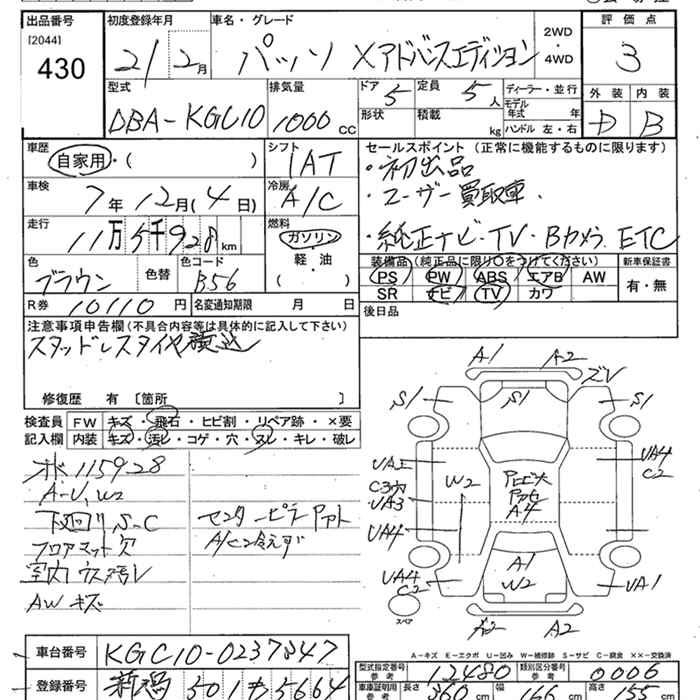 出品番号 初度登録年月 車名・グレード 評価点
[2044] 430 21/2月 パッソ Xアドバンスエディション 2WD・4WD 3
型式 排気量 ドア 5 定員 5人 ディーラー・並行 外装 内装
DBA-KGC10 1000cc 形状 積載 kg モデル年式 年 ハンドル 左・右 D B
車歴 シフト セールスポイント (正常に機能するものに限ります)
自家用・( ) IAT ・初出品
車検 冷房 ・ユーザー買取車.
7年12月(4日) A/C
走行 燃料 ・純正ナビ・TV・Bカメラ. ETC
11万5千928km ガソリン
軽・油
( )
色 色替 色コード 装備品(純正品に限り○をつけてください) 新車保証書
ブラウン B56 PS PW ABS エアB AW 有・無
SR ナビ TV カワ
R券 10110円 名変通知期限 月 日 後日品
注意事項申告欄(不具合内容等は具体的に記入して下さい)
スタッドレスタイヤ積込
修復歴 有 〔箇所 〕
検査員記入欄 FW キズ・飛石・ヒビ割・リペア跡・×要
内装 キズ・汚レ・コゲ・穴・スレ・キレ・破レ
115928
A-U, W2
下廻りS-C
フロアマット欠
室内ウス汚レ
AWキズ
A/C冷えず
A1 A2
ズレ
S1 S1 S1
UA4
C2
W2
UA3
A4
UA4
UA4
C2
A1
W2
UA1
スペア
A2 A2
A-キズ E-エクボ U-凹み W-補修跡 S-サビ C-腐食 ××-交換済
車台番号 KGC10-0237847
型式指定番号 参考 12480 類別区分番号 参考 0006
登録番号 新潟 501 5664
車庫証明用 参考 長さ 360cm 幅 166cm 高さ 153cm